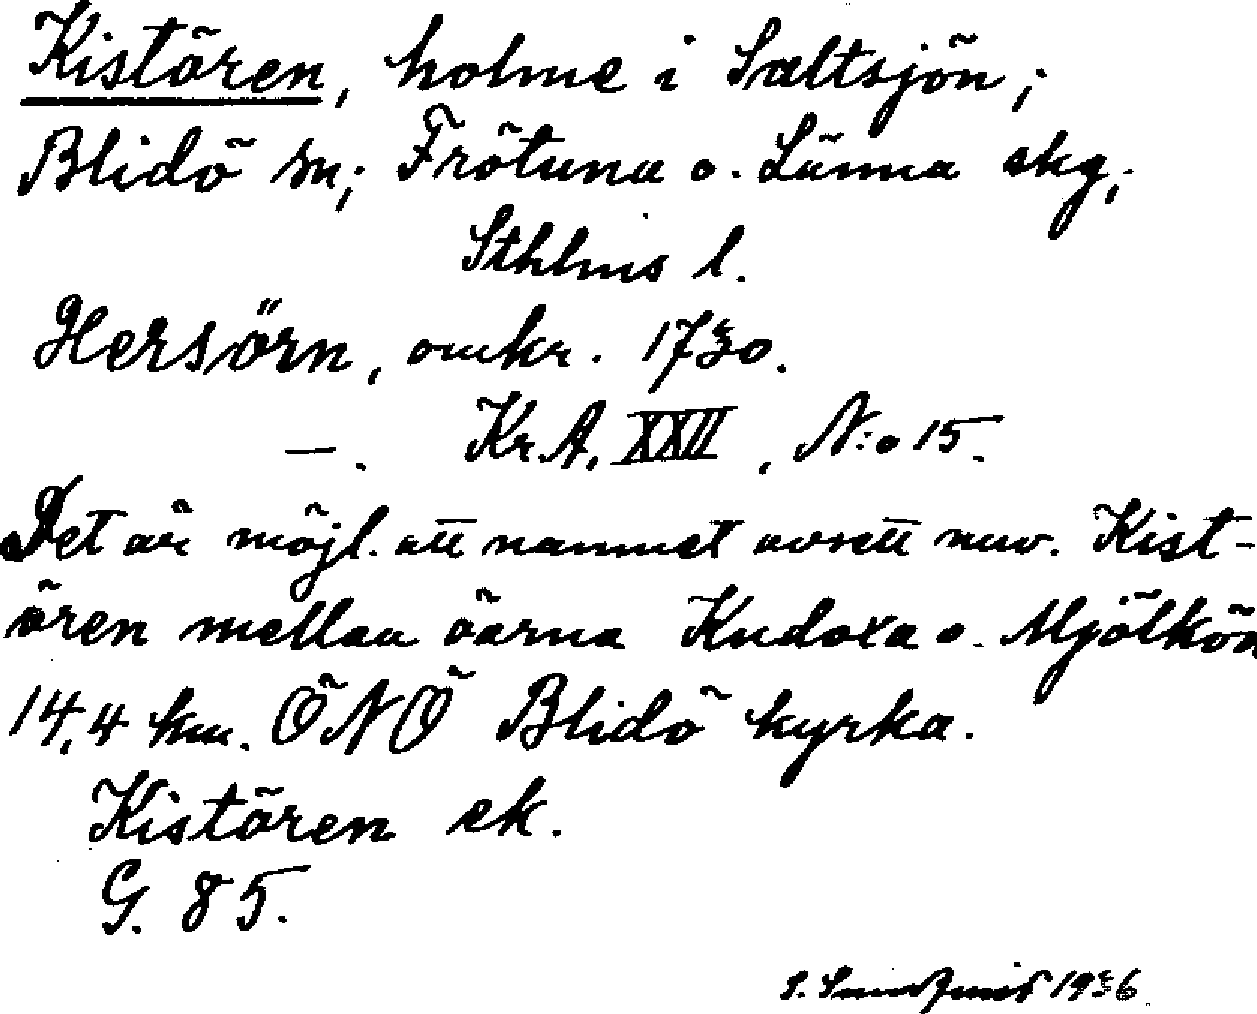 Kistören, holme i Saltsjön;
Blidö sn; Frötuna o. Länna skg,
Sthlms l.
Hersörn, omkr. 1730.
—. Kr.A. XXII, N:o 15.
Det är möjl. att namnet avsett nuv. Kist-
ören mellan öarna Kudoxa o. Mjölkön
14,4 km. ÖNÖ Blidö kyrka.
Kistören ek.
G. 85.
S. 1936